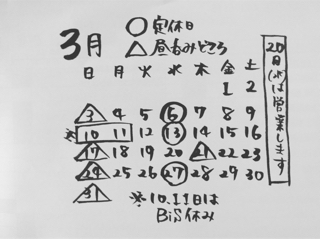 3月
○定休日
△昼呑みどころ
日 月 火 水 木 金 土
1 2
3 4 5 6 7 8 9
※10 11 12 13 14 15 16
17 18 19 20 21 22 23
24 25 26 27 28 29 30
31
※10.11日は
BiS休み
20日(水)は営業します